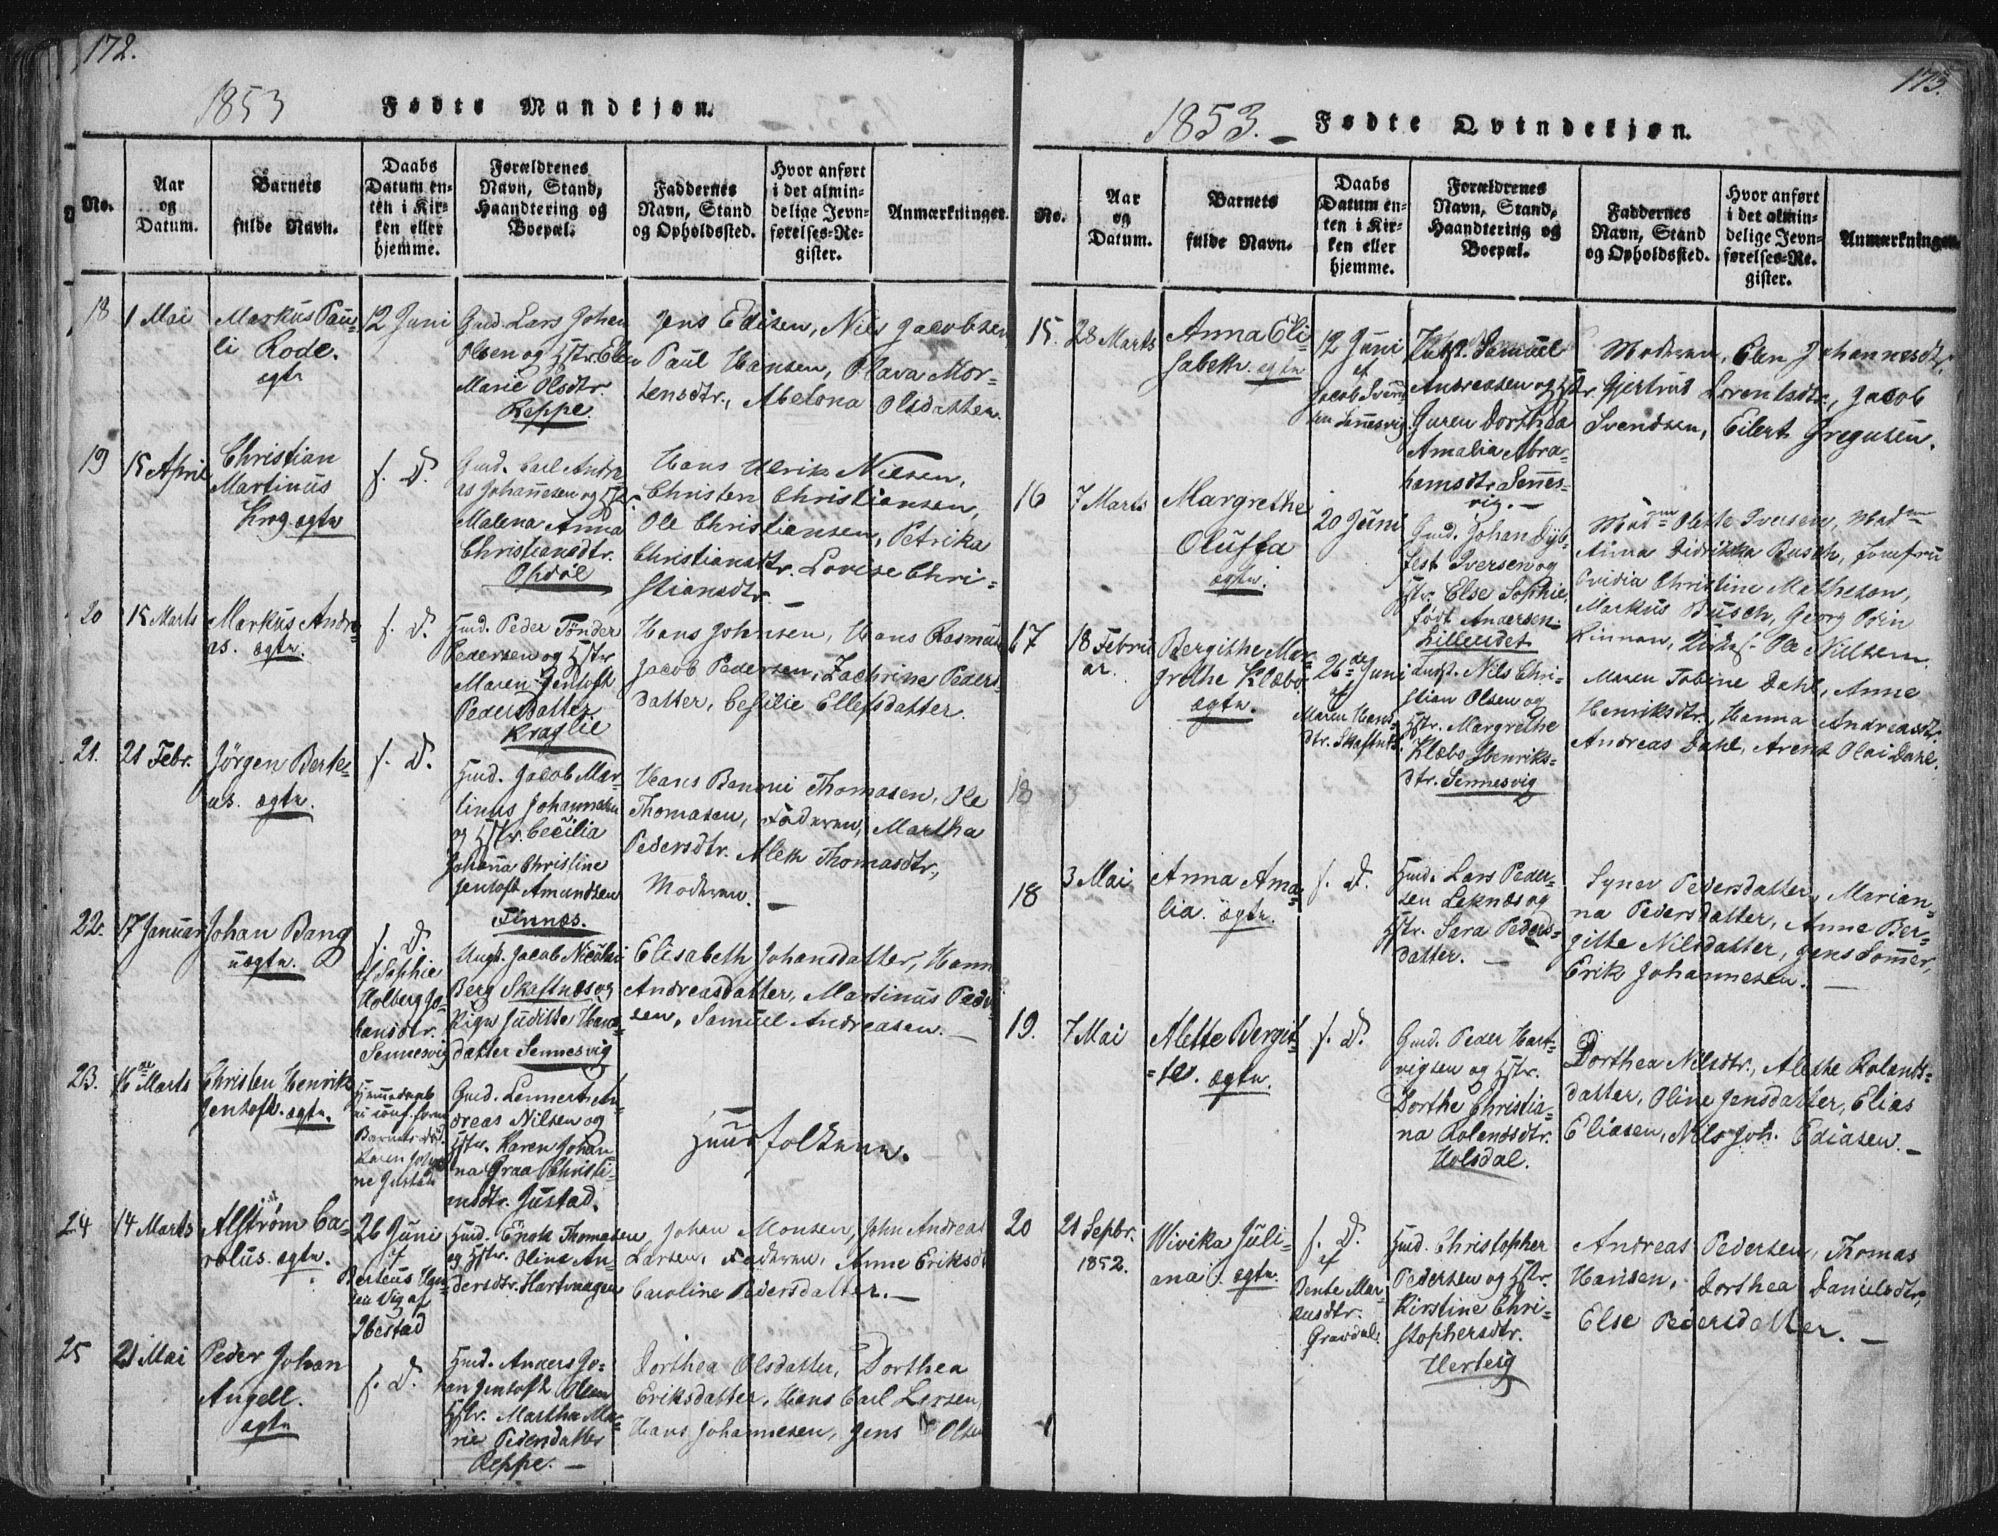 172.
1853
Fødte Mandkjøn.
No.
Aar
og
Datum.
Barnets
fulde Navn.
Daabs
Datum en-
ten i Kir-
ken eller
hjemme.
Forældrenes
Navn, Stand,
Haandtering og
Boepæl.
Faddernes
Navn, Stand
og Opholdssted.
Hvor anført
i det almin-
delige Jevn-
førelses-Re-
gister.
Anmærkninger.
18
1 Mai
Markus Pau-
li Rode.
ægte
12 Juni
Gmd. Lars Johan
Olsen og Hstr. Elen
Marie Olsdtr.
Reppe.
Jens Edisen, Nils Jacobsen
Paul Hansen, Olava Mor-
tensdtr., Abelona Olsdatter.
19
15 April
Christian
Martinus
Krog. ægte
f. D.
Gmd. Carl Andre
as Johannesen og Hstr.
Malena Anna
Christiansdtr.
Opdøl
Hans Ulrik Nilsen,
Christen Christiansen,
Ole Christiansen, Petrika
Christiansdtr. Lovise Chri-
stiansdtr. —
20
15 Marts
Markus Andre
as. ægte.
f. D.
Hmd. Peder Tønder
Pedersen og Hstr
Maren Jentoft
Pedersdatter
Kraglie
Hans Johnsen, Hans Rasmus
Jacob Pedersen, Zachrine Peders
datter, Cesilie Ellefsdatter.
21.
21 Febr.
Jørgen Berte-
us. ægte.
f. D.
Hmd. Jacob Mar-
tinus Johannesen
og Hstr. Cecilia
Johanna Christine
Jentoft Amundsen
Finnæs.
Hans Benoni Thomasen, Ole
Thomasen, Faderen, Martha
Pedersdtr. Aleth Thomasdtr,
Moderen. —
22.
17 Januar
Johan Bang
uægte.
f. D.
af Sophie
Holberg Jo-
hansdtr.
Sennesvig
Ungk. Jacob Nicolai
Berg Skaftnæs og
Pige Juditte Hans-
datter Sennesvig
Elisabeth Johansdatter, Hanna
Andreasdatter, Martinus Peder
sen, Samuel Andreasen. —
23.
16de Marts
Christen Henrik
Jentoft. ægte.
Hjemmedøbt
Gmd. Lennert An-
dreas Nilsen og
Hstr. Karen Johan-
na Graa Christi-
ansdtr. Justad.
Huusfolkene.
24
14 Marts
Alstrøm Ca-
rolus. ægte.
26 Juni
af
Berteus Han-
sen Vig af
Ibestad
Hmd. Enok Thomasen
og Hstr. Oline An-
dersdtr. Hartvagen
Johan Monsen, John Andreas
Larsen, Faderen, Anne Eriksdtr
Caroline Pedersdatter. —
25
21 Mai
Peder Johan
Angell.
ægte
f. D.
Hmd. Anders Jo-
han Jentoft Olsen
Hstr. Martha Ma-
rie Pedersdatter
Reppe. —
Dorthea Olsdatter, Dorthea
Eriksdatter, Hans Carl Larsen,
Hans Johannesen, Jens Olsen
173.
1853. —
Fødte Qvindekjøn.
No.
Aar
og
Datum.
Barnets
fulde Navn.
Daabs
Datum en-
ten i Kir-
ken eller
hjemme.
Forældrenes
Navn, Stand,
Haandtering og
Boepæl.
Faddernes
Navn, Stand
og Opholdssted.
Hvor anført
i det almin-
delige Jevn-
førelses-Re-
gister.
Anmærkninger.
15.
28 Marts
Anna Eli-
sabeth. ægte
12 Juni
af
Jacob Svend
sen Sennesvig
Indst. Samuel
Andreasen og Hstr.
Guren Dorthea
Amalia Abra-
hamsdtr Sennes-
vig. —
Moderen, Elen Johannesdtr,
Gjertrud Lorentsdtr, Jacob
Svendsen, Eilert Gregusen.
16
7 Marts
Margrethe
Oluffa
ægte.
20 Juni
Gmd. Johan Dyb-
fest Iversen og
Hstr. Else Sophie,
født Andersen
Lilleeidet
Madme Olette Iversen, Madme
Anna Didrikka Busch, Jomfru
Ovidia Christine Matheson,
Markus Busch, Georg Pørn
Rinnan, Ole Nilsen.
17
18 Febru
ar.
Bergithe Mar-
grethe Klæbo
ægte.
26de Juni
af
Maren Hans
dtr. Skaftnæs
Indst. Nils Chri-
stian Olsen og
Hstr. Margrethe
Klæbo Henriks-
dtr. Sennesvig
Maren Tobine Dahl, Anne
Henriksdtr, Hanna Andreasdtr
Andreas Dahl, Arent Olai Dahl.
18
18
3 Mai
Anna Ama-
lia. ægte.
f. D.
Hmd. Lars Peder-
sen Leknæs og
Hstr. Sara Peders-
datter. —
Synev Pedersdatter, Marian-
na Pedersdatter, Anne Ber-
gitte Nilsdatter, Jens Sommer,
Erik Johannesen. —
19.
7 Mai
Alette Bergit-
te. ægte.
f. D.
Gmd. Peder Hart-
vigsen og Hstr.
Dorthe Christia-
na Rolandsdtr.
Holsdal.
Dorthea Nilsdtr., Alethe Rolands-
datter, Oline Jensdatter, Elias
Eliasen, Nils Joh. Ediasen. —
20
21 Septbr.
1852.
Wivika Juli-
ana. ægte.
f. D.
af
Bente Mar-
kusdtr.
Gravdal.
Hmd. Christopher
Pedersen og Hstr.
Kirstine Chri-
stophersdtr.
Herteig
Andreas Pedersen, Thomas
Hansen, Dorthea Danielsdtr,
Else Pedersdatter. —